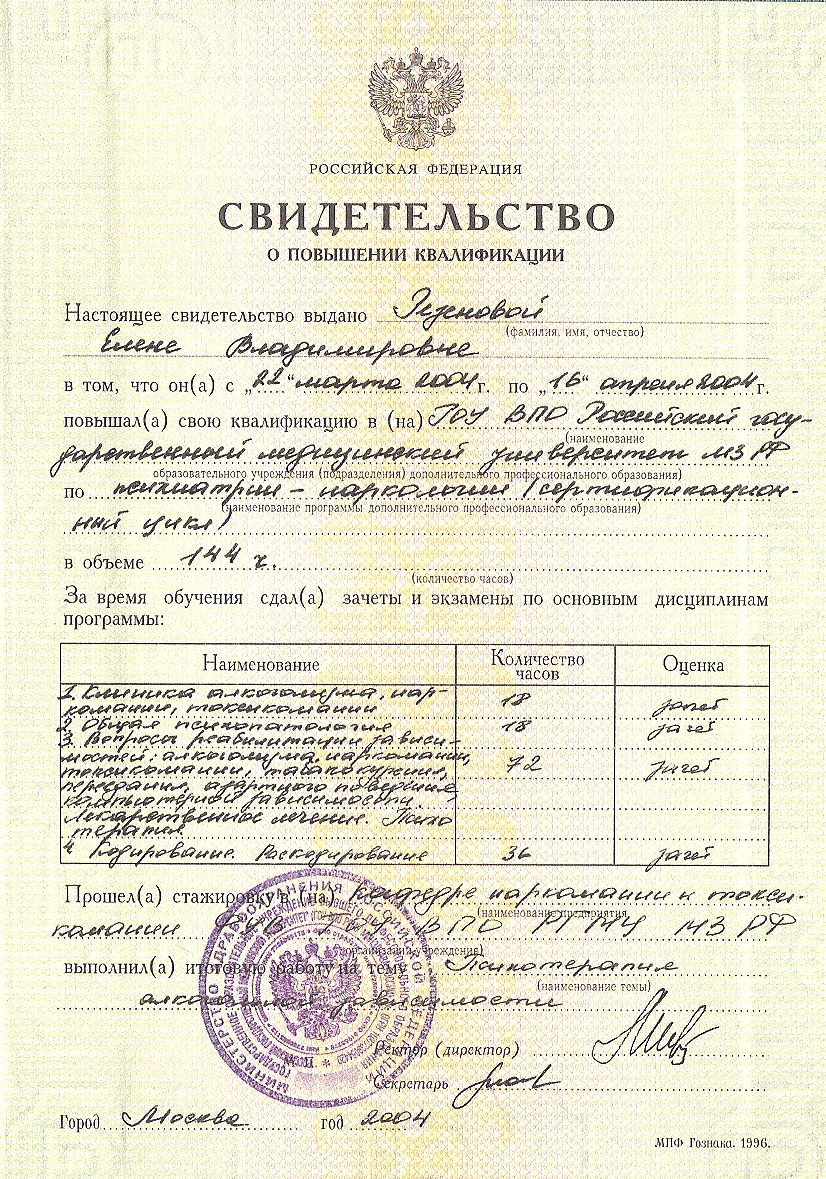 РОССИЙСКАЯ ФЕДЕРАЦИЯ
СВИДЕТЕЛЬСТВО
О ПОВЫШЕНИИ КВАЛИФИКАЦИИ
Настоящее свидетельство выдано
(фамилия, имя, отчество)
Елене Владимировне
в том, что он(а) с „22“ марта 2004 г. по „16“ апреля 2004 г.
повышал(а) свою квалификацию в (на) ГОУ ВПО Российский госу-
(наименование
дарственный медицинский университет МЗ РФ
образовательного учреждения (подразделения) дополнительного профессионального образования)
по психиатрии - наркологии (сертификацион-
(наименование программы дополнительного профессионального образования)
ный цикл)
в объеме 144 ч.
(количество часов)
За время обучения сдал(а) зачеты и экзамены по основным дисциплинам
программы:
Наименование Количество часов Оценка
1. Клиника алкоголизма, нар-
комании, токсикомании 18 зачет
2. Общая психопатология 18 зачет
3. Вопросы реабилитации зависи-
мостей: алкоголизма, наркомании,
токсикомании, табакокурения, 72 зачет
переедания, азартного поведения
компьютерной зависимости.
Лекарственное лечение. Психо
терапия
4 Кодирование. Раскодирование 36 зачет
Прошел(а) стажировку в (на) Кафедре наркомании и токси-
(наименование предприятия,
комании ВПО РГМУ МЗ РФ
организации, учреждение)
выполнил(а) итоговую работу на тему Психотерапия
(наименование темы)
алкогольной зависимости
М.П.
Ректор (директор)
Секретарь
Город Москва год 2004
МПФ Гознака. 1996.